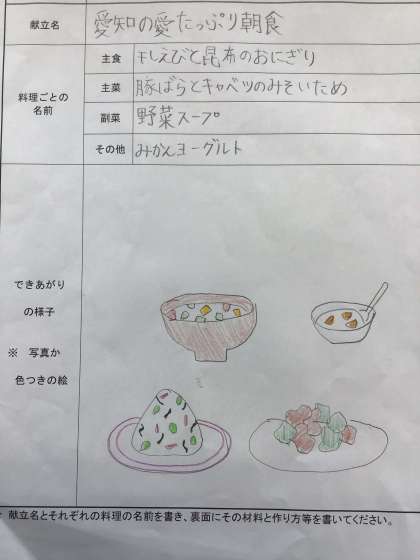 献立名 愛知の愛たっぷり朝食
料理ごとの名前
主食 干しえびと昆布のおにぎり
主菜 豚ばらとキャベツのみそいため
副菜 野菜スープ
その他 みかんヨーグルト
できあがり
の様子
※ 写真か
色つきの絵
献立名とそれぞれの料理の名前を書き、裏面にその材料と作り方等を書いてください。